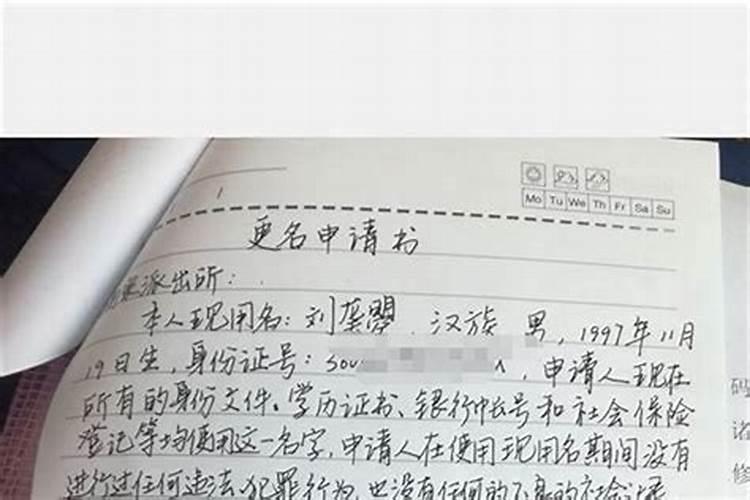 Mo Tu We Th Fr Sa Su
更名申请书
派出所：
本人现用名：刘龚曌 汉族 男，1997年11月
19日生，身份证号：500 ，申请人现在
所有的身份文件、学历证书、银行卡号和社会保险
登记等均使用这一名字，申请人在使用现用名期间没有
进行过任何违法、犯罪行为，也没有任何的不良的社会
码
诸
修